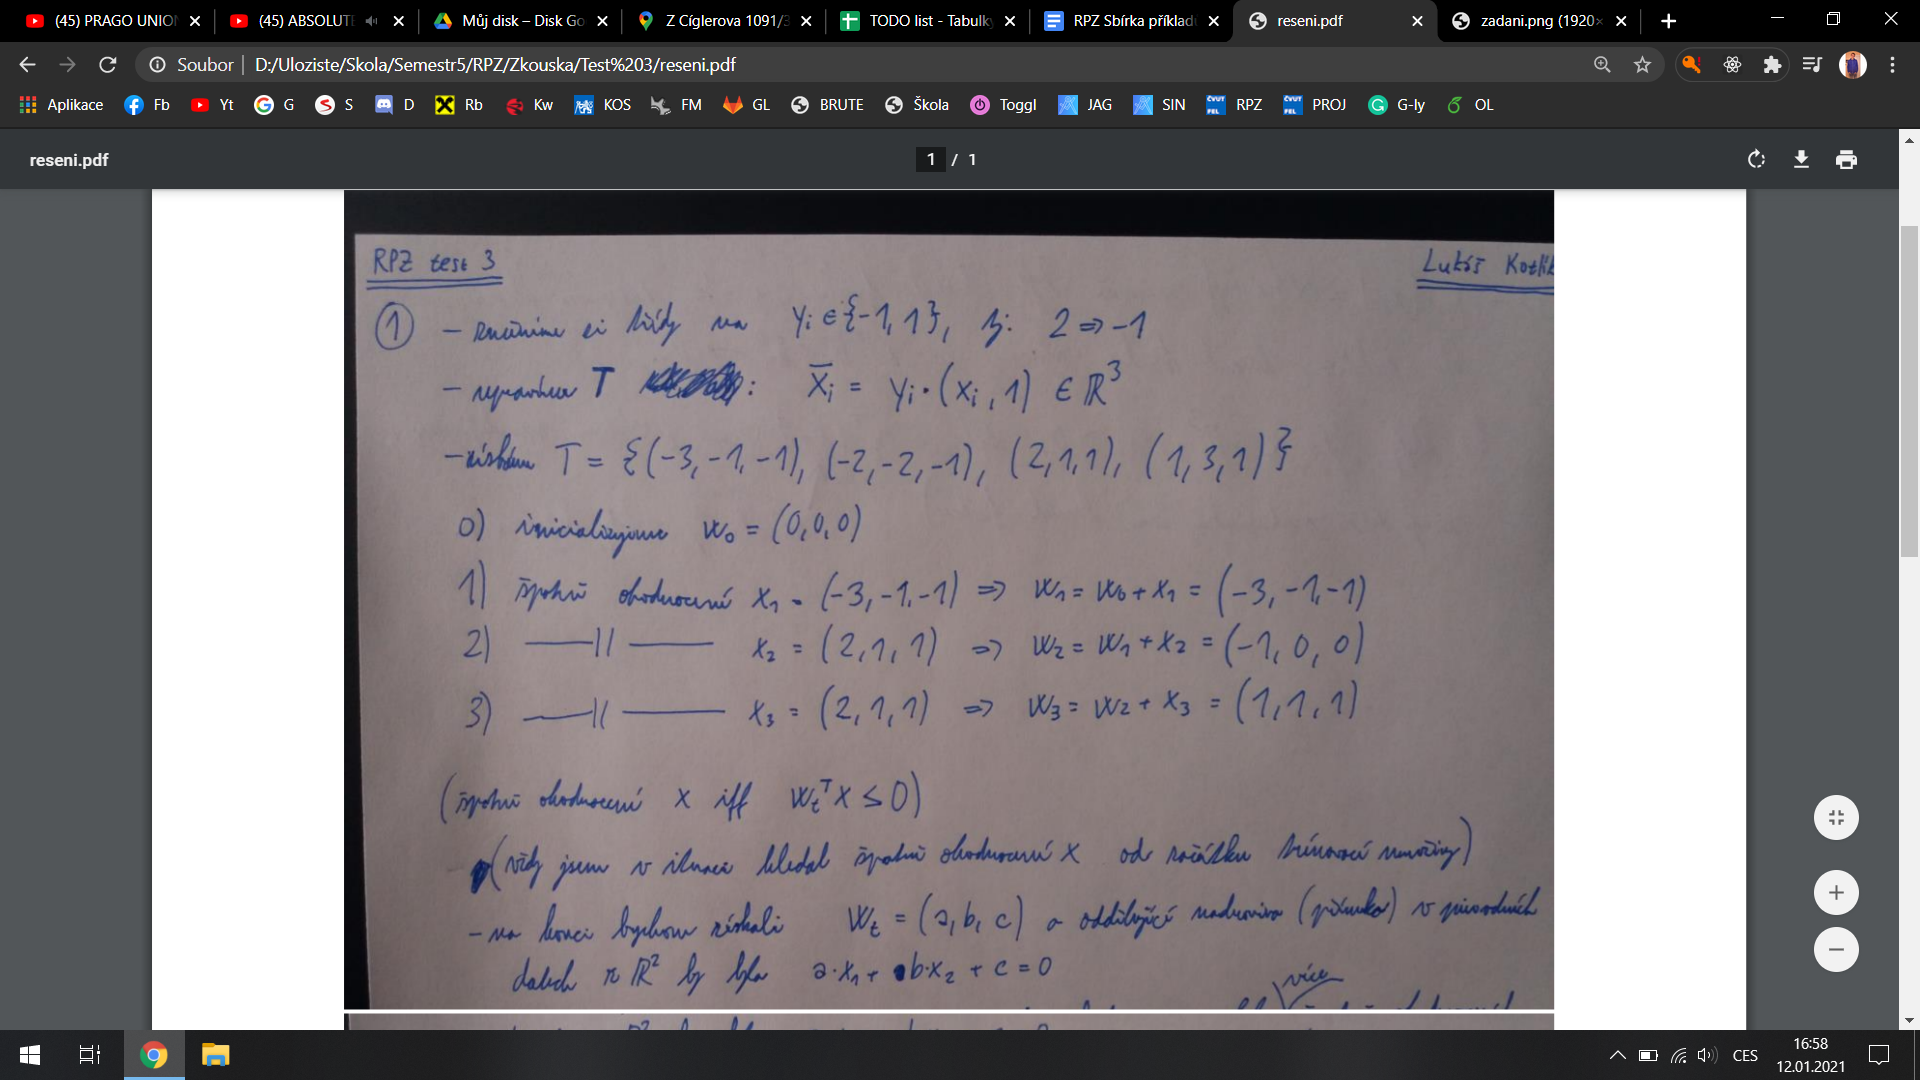 (45) PRAGO UNION
(45) ABSOLUTE
Můj disk – Disk Go
Z Cíglerova 1091/3
TODO list - Tabulky
RPZ Sbírka příkladů
reseni.pdf
zadani.png (1920×
Soubor | D:/Uloziste/Skola/Semestr5/RPZ/Zkouska/Test%203/reseni.pdf
Aplikace Fb Yt G S D Rb Kw KOS FM GL BRUTE Škola Toggl JAG SIN RPZ PROJ G-ly OL
reseni.pdf 1 / 1
RPZ test 3 Lukáš
1 – si třídy na yᵢ ∈ {-1, 1}, tj: 2 => -1
– T : x̄ᵢ = yᵢ·(xᵢ, 1) ∈ ℝ³
– získám T = {(-3,-1,-1), (-2,-2,-1), (2,1,1), (1,3,1)}
0) inicializujeme w₀ = (0,0,0)
1) špatně ohodnocení x₁ = (-3,-1,-1) => w₁ = w₀ + x₁ = (-3,-1,-1)
2) —||— x₂ = (2,1,1) => w₂ = w₁ + x₂ = (-1, 0, 0)
3) —||— x₃ = (2,1,1) => w₃ = w₂ + x₃ = (1,1,1)
(špatně ohodnocení x iff wₜᵀx ≤ 0)
(vždy jsem v iteraci hledal špatně ohodnocení x od začátku trénovací množiny)
– na konci bychom získali wₜ = (a, b, c) a oddělující nadrovina (přímka) v původních
datech z ℝ² by byla a·x₁ + b·x₂ + c = 0
více
CES
16:58
12.01.2021